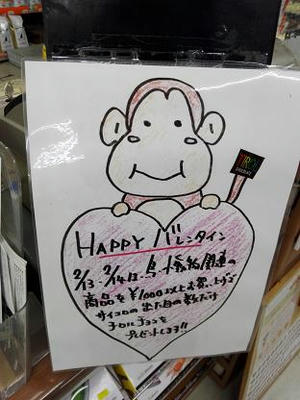 TIROL
HAPPY バレンタイン
2/13・2/14は、鳥・小動物関連の
商品を¥1,000以上お買い上げで
サイコロの出た目の数だけ
チロルチョコを
プレゼントします!!